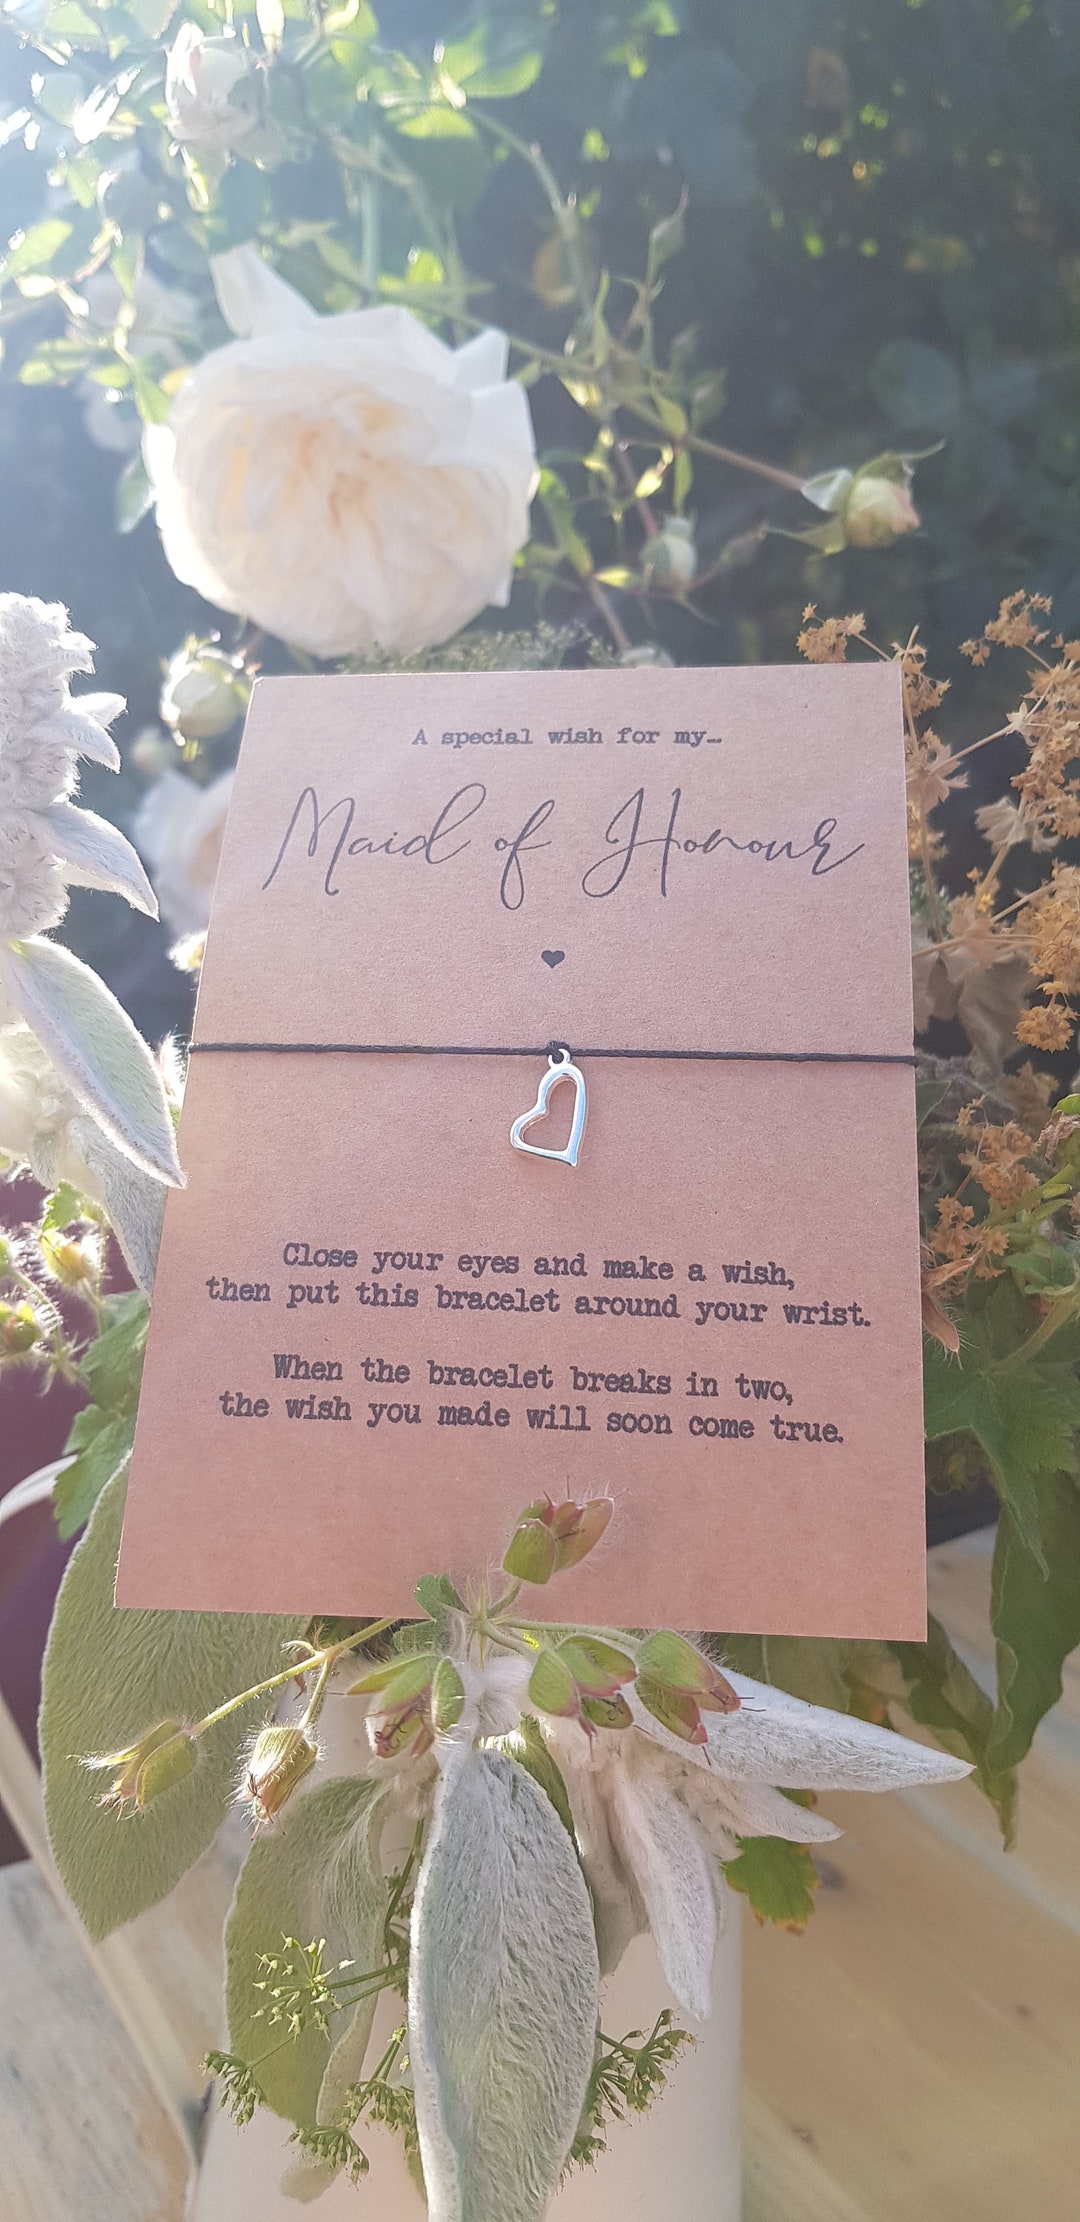 A special wish for my…
Maid of Honour
Close your eyes and make a wish,
then put this bracelet around your wrist.
When the bracelet breaks in two,
the wish you made will soon come true.